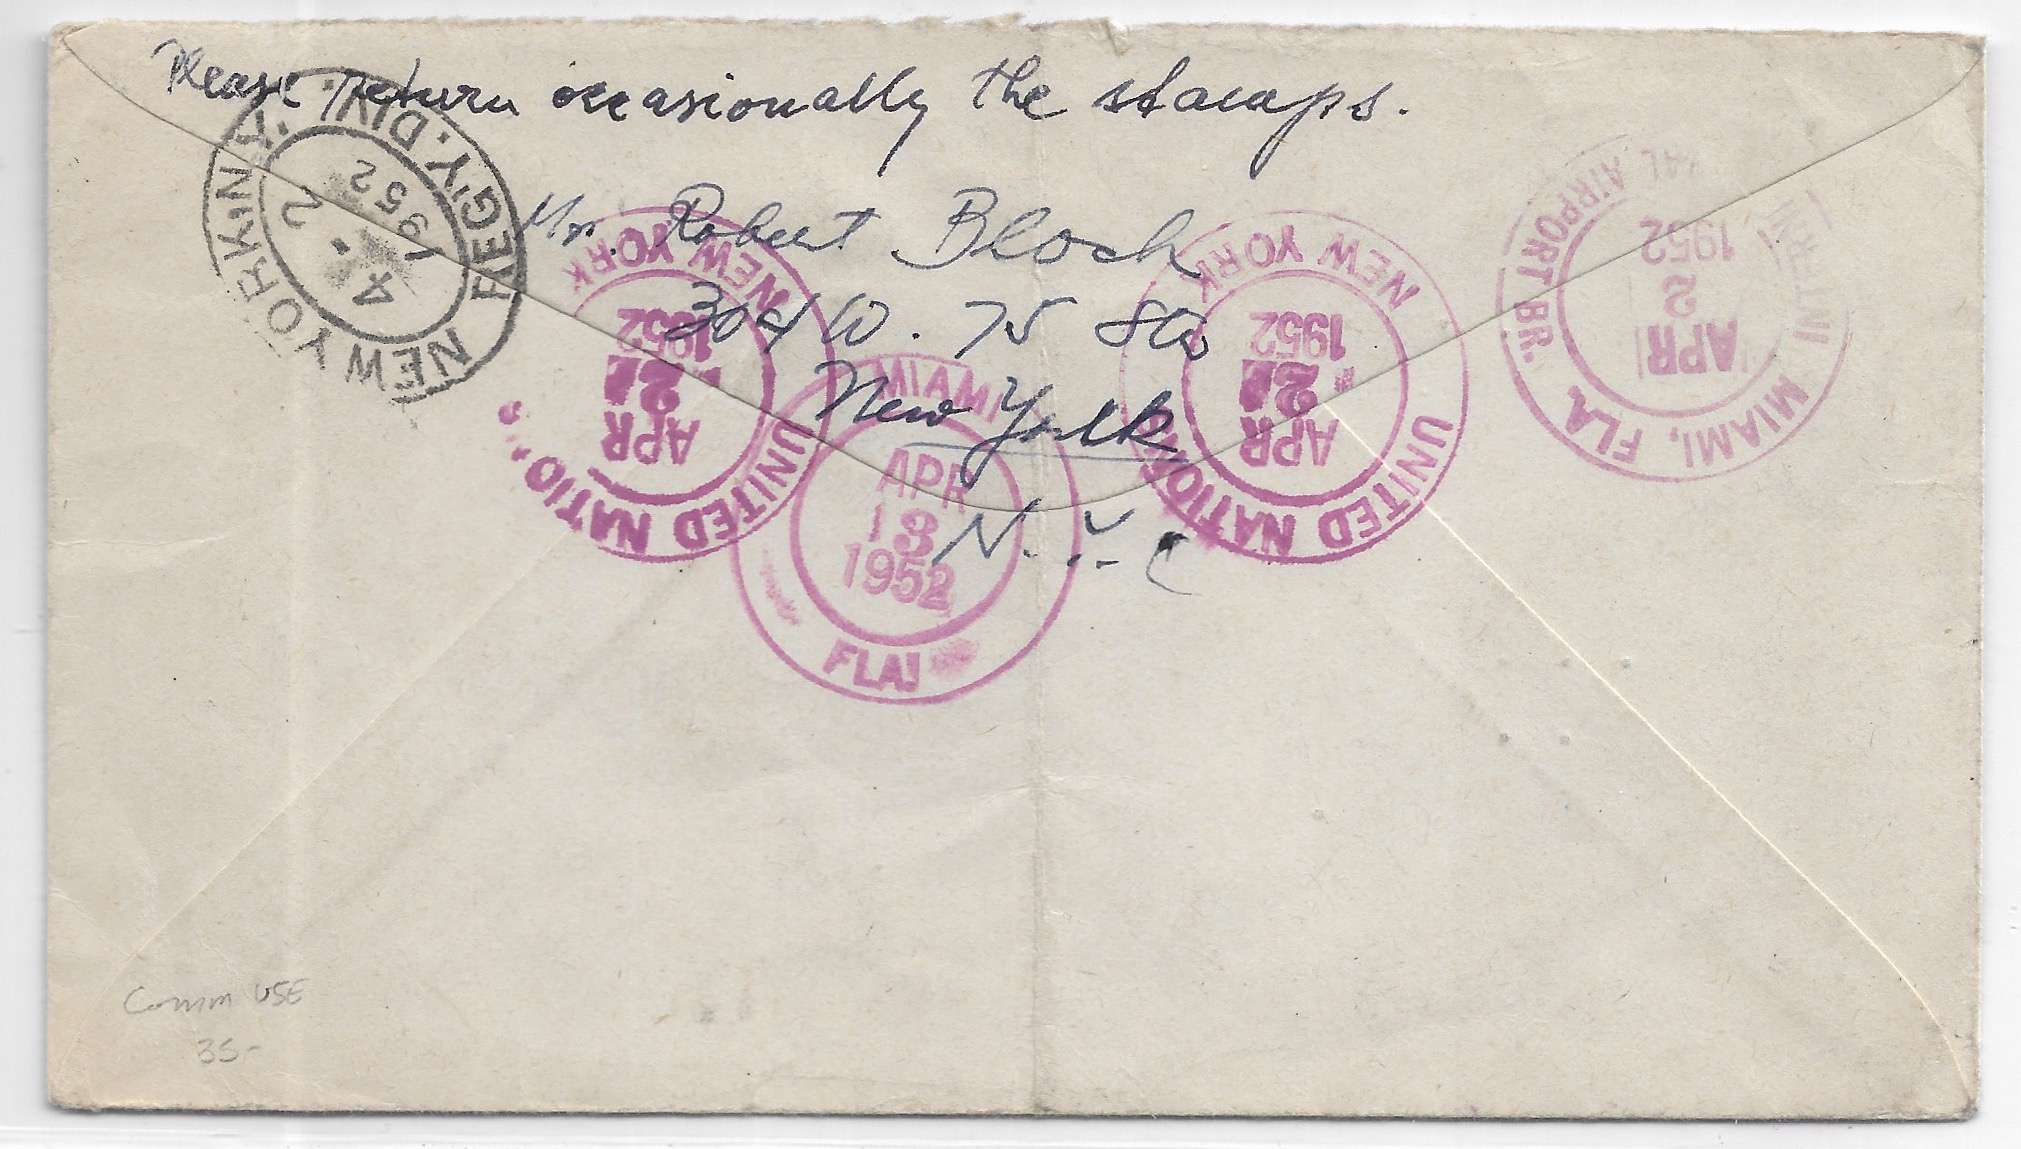 Please return occasionally the stamps.
Mr. Robert Bloch
304 W. 75 Str
New York
N.Y. C
NEW YORK, N.Y. REG'Y. DIV.
4 - 2
1952
UNITED NATIONS
NEW YORK
APR
1952
MIAMI
APR
13
1952
FLA.
UNITED NATIONS
NEW YORK
APR
1952
MIAMI, FLA.
AIRPORT BR.
APR
2
1952
Comm USE
35-